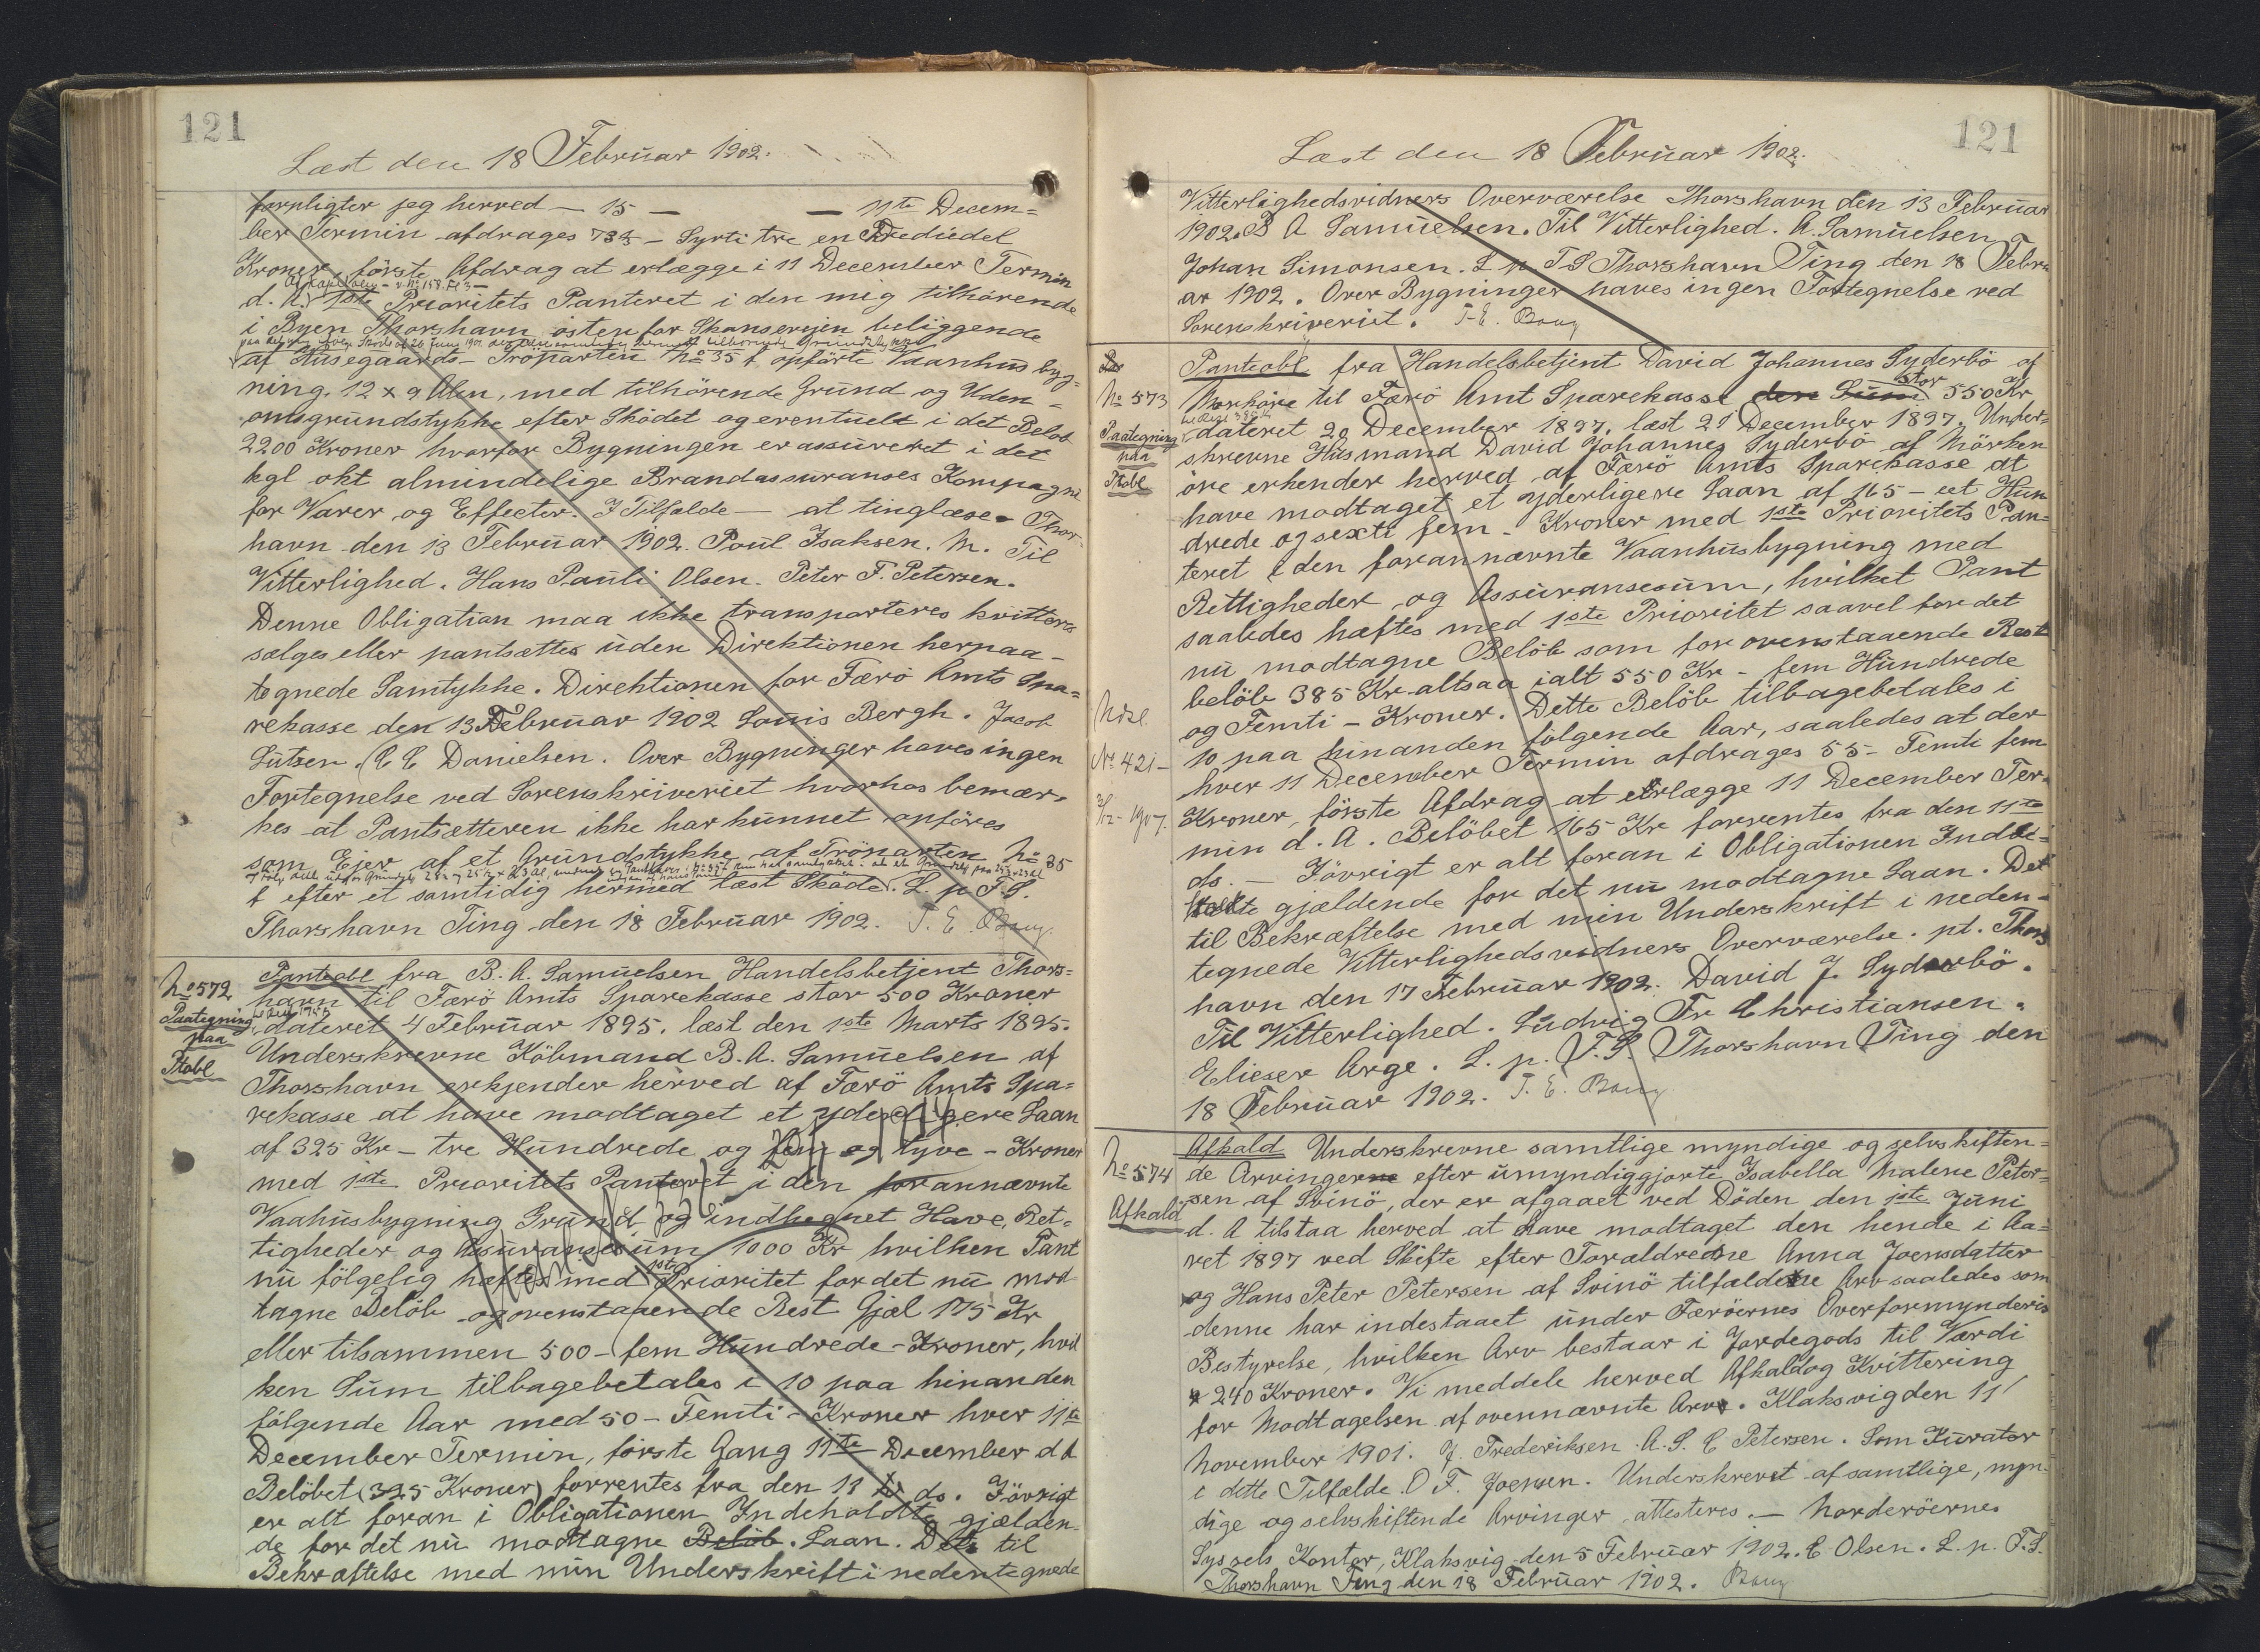 121
Læst den 18 Februar 1902.
forpligter jeg herved – 15 – – 11te Decem=
ber Termin afdrages 73⅓ – Syvti tre en Trediedel
Kroner, første Afdrag at erlægge i 11 December Termin
d. A. 1ste Prioritets Panteret i den mig tilhørende
i Byen Thorshavn østen for Skansevejen beliggende
af Husegaards-Trøparten No 35 f opførte Vaanhus byg=
ning. 12 x 9 Alen, med tilhørende Grund og Uden=
omsgrundstykke efter Skødet og eventuelt i det Beløb
2200 Kroner hvorfor Bygningen er assureret i det
kgl okt almindelige Brandassuranses Kompagni
for Varer og Effecter. I Tilfælde – at tinglæse. Thors-
havn den 13 Februar 1902. Poul Isaksen. M. Til
Vitterlighed. Hans Pauli Olsen. Peter F. Petersen.
Denne Obligation maa ikke transporteres kvitteres
sælges eller pantsættes uden Direktionen herpaa-
tegnede Samtykke. Direktionen for Færø Amts Spa=
rekasse den 13 Februar 1902 Louis Bergh. Jacob
Lützen. C C Danielsen. Over Bygninger haves ingen
Fortegnelse ved Sorenskriveriet hvorhos bemær=
kes at Pantsætteren ikke har kunnet anføres
som Ejer af et Grundstykke af Trøparten No 35
f efter et samtidig hermed læst Skøde. L. p. T. S.
Thorshavn Ting den 18 Februar 1902. T. E. Bang.
No 572
Paategning
paa
Ptobl
Panteobl fra B. A. Samuelsen Handelsbetjent Thors=
havn til Færø Amts Sparekasse stor 500 Kroner
dateret 4 Februar 1895. læst den 1ste Marts 1895.
Underskrevne Købmand B. A. Samuelsen af
Thorshavn erkjender herved af Færø Amts Spa=
rekasse at have modtaget et yderligere Laan
af 325 Kr – tre Hundrede og fem og tyve – Kroner
med 1ste Prioritets Panteret i den forannævnte
Vaahusbygning Grund og indhegnet Have, Ret=
tigheder og Assuransesum 1000 Kr hvilken Pant
nu følgelig hæftes med 1ste Prioritet for det nu mod
tagne Beløb og ovenstaaende Rest Gjæl 175 Kr
eller tilsammen 500 – fem Hundrede – Kroner, hvil
ken Sum tilbagebetales i 10 paa hinanden
følgende Aar med 50 – Femti – Kroner hver 11te
December Termin, første Gang 11te December d A
Beløbet (325 Kroner) forrentes fra den 11 te ds. Jøvrigt
er alt foran i Obligationen Indeholdte gjælden=
de for det nu modtagne Beløb. Laan. Dets til
Bekræftelse med min Underskrift i nedentegnede
121
Læst den 18 Februar 1902.
Vitterlighedsvidners Overværelse Thorshavn den 13 Februar
1902. B A Samuelsen. Til Vitterlighed. A. Samuelsen
Johan Simonsen. L p. T S Thorshavn Ting den 18 Febru
ar 1902. Over Bygninger haves ingen Fortegnelse ved
Sorenskriveriet. T. E. Bang
No 573
Paategning
paa
Ptobl
Panteobl fra Handelsbetjent David Johannes Syderbø af
Morkøre til Færø Amt Sparekasse den Sum stor 550 Kr
dateret 20 December 1897. læst 21 December 1897. Under=
skrevne Husmand David Johannes Syderbø af Mørken
øre erkender herved af Færø Amts Sparekasse at
have modtaget et yderligere Laan af 165 – eet Hun
drede og sexti fem – Kroner med 1ste Prioritets Pan=
teret i den forannævnte Vaanhusbygning med
Rettigheder og Assuransesum, hvilket Pant
saaledes hæftes med 1ste Prioritet saavel for det
nu modtagne Beløb som for ovenstaaende Rest
beløb 385 Kr altsaa ialt 550 Kr – fem Hundrede
og Femti – Kroner. Dette Beløb tilbagebetales i
10 paa hinanden følgende Aar, saaledes at der
hver 11 December Termin afdrages 55 – Femti fem
Kroner, første Afdrag at erlægge 11 December Ter=
min d. A. Beløbet 165 Kr forrentes fra den 11te
ds. – Jøvrigt er alt foran i Obligationen Inde=
holdte gjældende for det nu modtagne Laan. Det
til Bekræftelse med min Underskrift i neden=
tegnede Vitterlighedsvidners Overværelse. pt. Thors
havn den 17 Februar 1902. David J. Syderbø.
Til Vitterlighed. Ludvig Fr Christiansen.
Elieser Arge. L. p. T. S. Thorshavn Ting den
18 Februar 1902. T. E. Bang
No 421 –
No 574
Afkald
Afkald Underskrevne samtlige myndige og selvskiften=
de Arvingerne efter umyndiggjorte Isabella Malene Peter=
sen af Svinø, der er afgaaet ved Døden den 1ste Juni
d. A tilstaa herved at have modtaget den hende i Aa=
ret 1897 ved Skifte efter Forældrene Anna Joensdatter
og Hans Peter Petersen af Svinø tilfaldene Arv saaledes som
denne har indestaaet under Færøernes Overformynderis
Bestyrelse, hvilken Arv bestaar i Jordegods til Værdi
240 Kroner. Vi meddele herved Afkald og Kvittering
for Modtagelsen af ovennævnte Arv. Klaksvig den 11
November 1901. J. Frederiksen. A. S. C Petersen. Som Kurator
i dette Tilfælde. O F. Joensen. Underskrevet af samtlige, myn-
dige og selvskiftende Arvinger, attesteres. – Norderøernes
Syssels Kontor, Klaksvig den 5 Februar 1902. C Olsen. L. p. T. S.
Thorshavn Ting den 18 Februar 1902. Bang